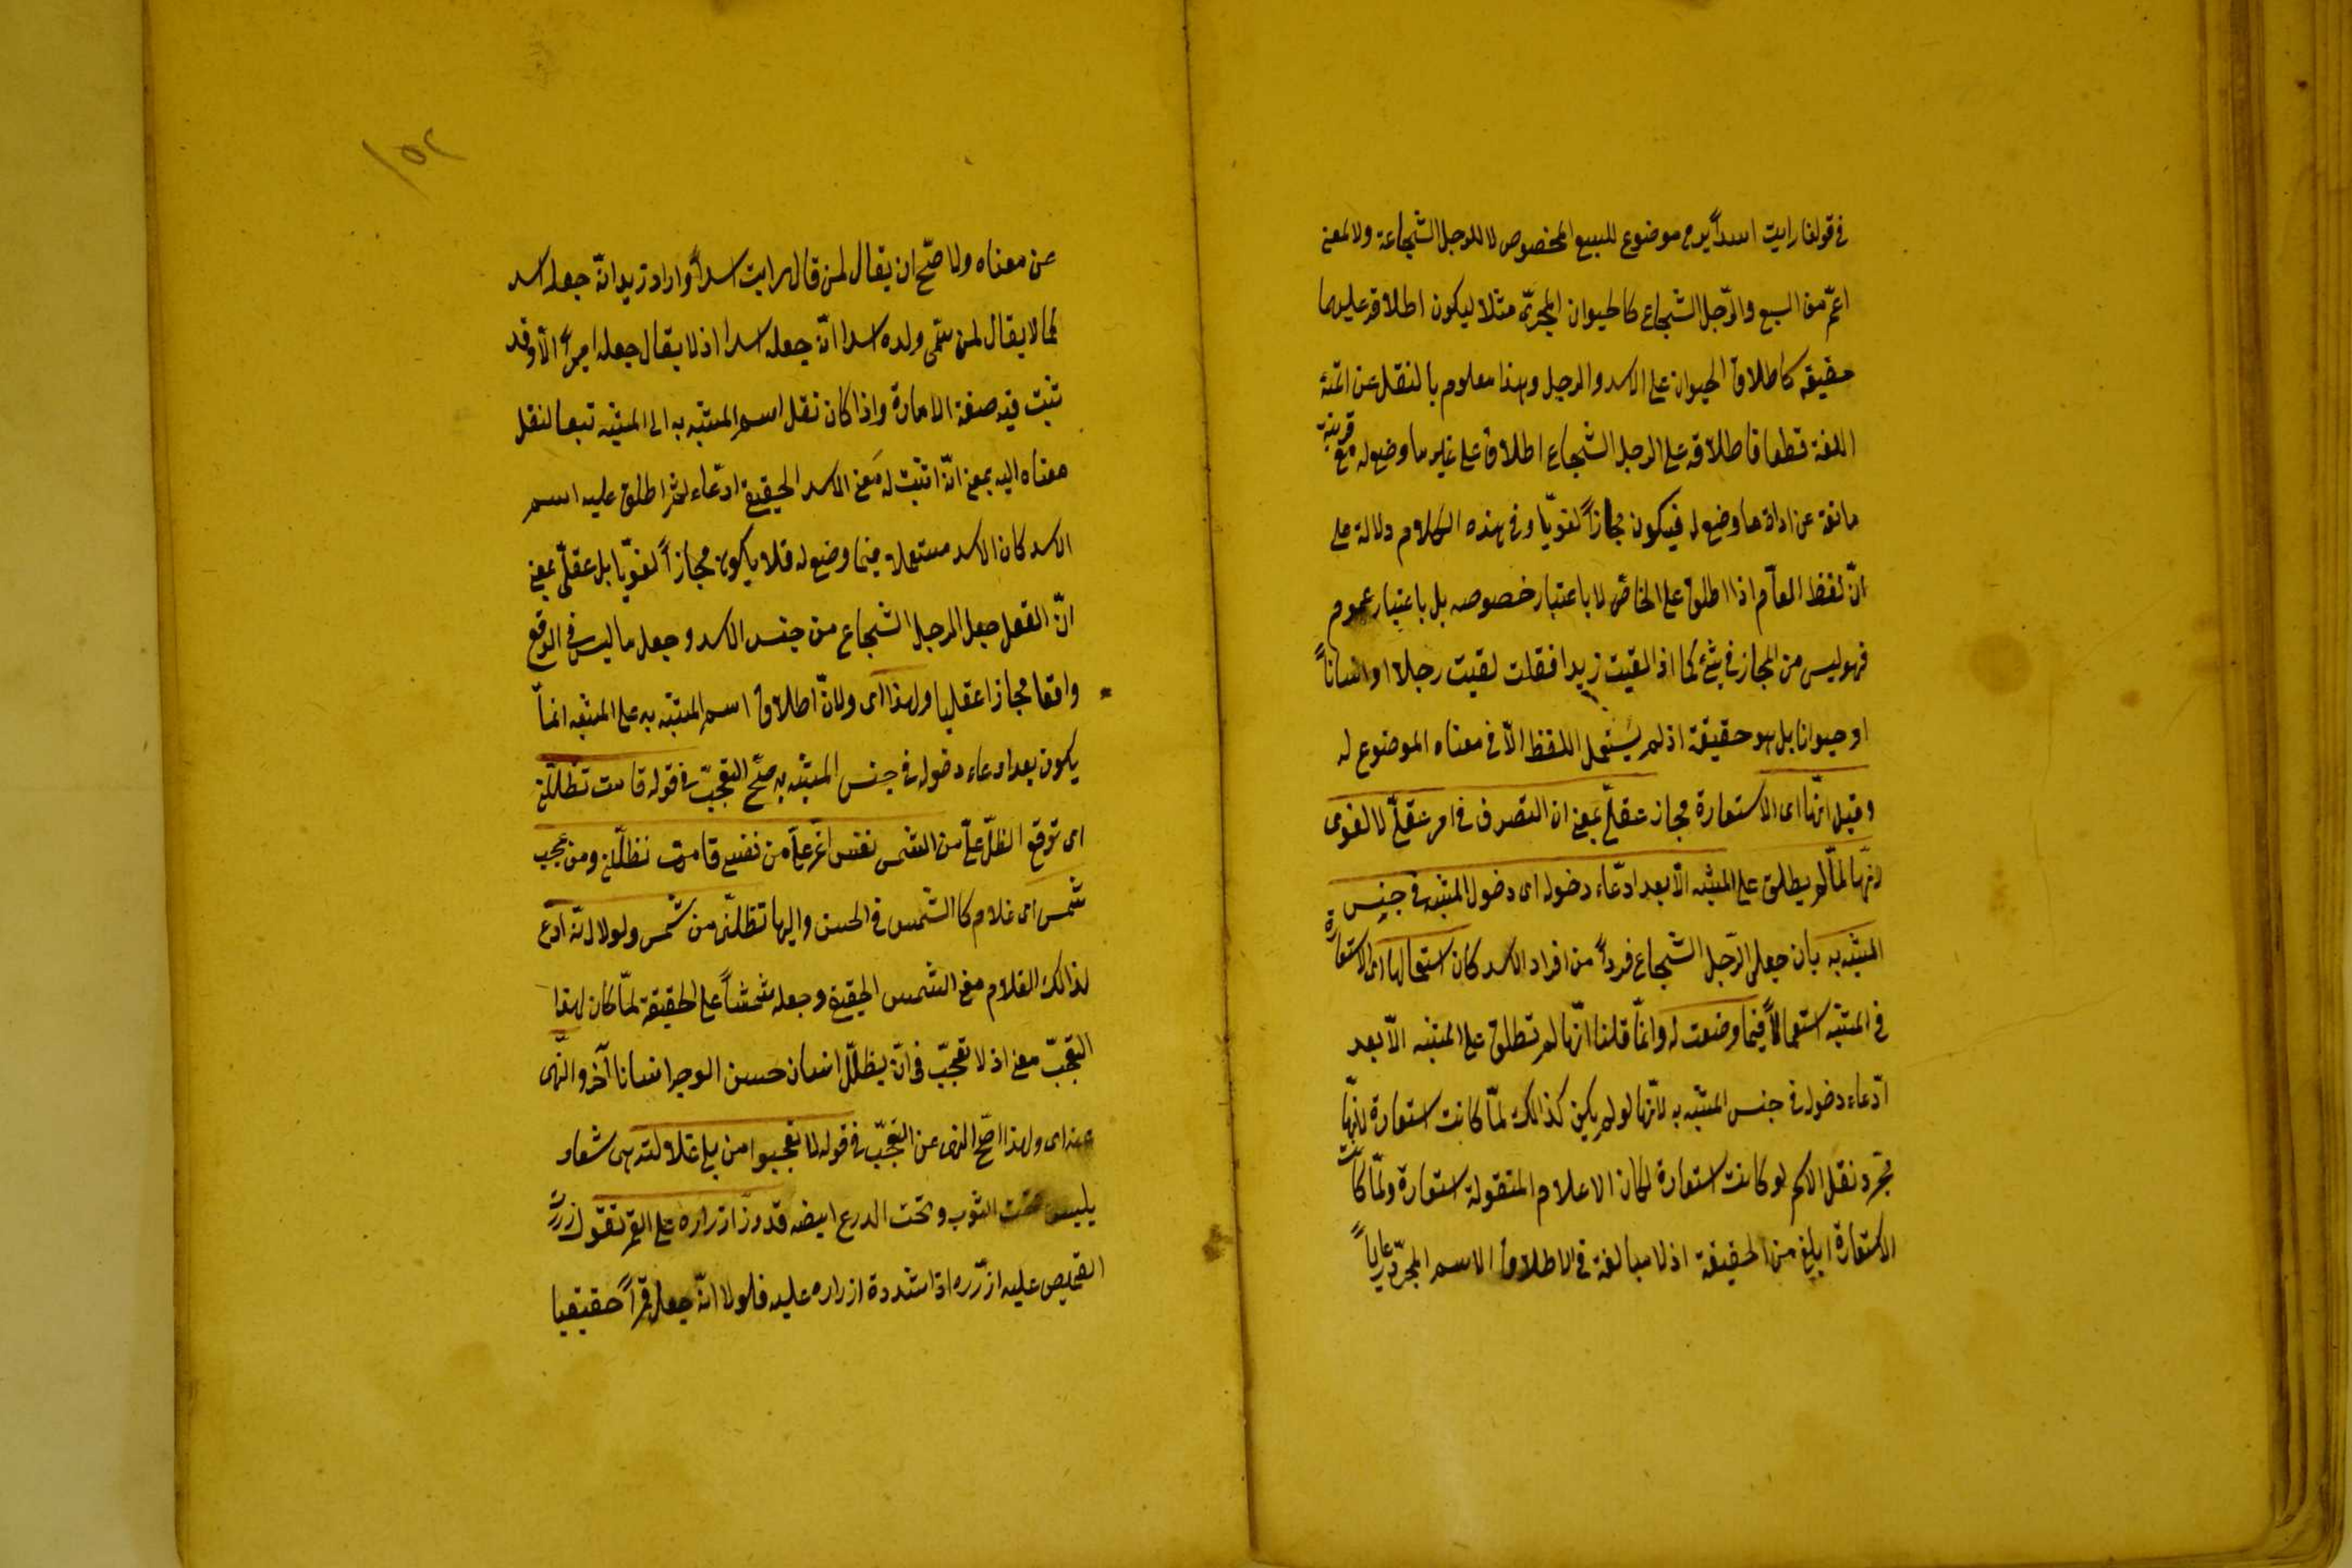 فى قولنا رايت اسداً يرمى موضوع للسبع المخصوص لا للرجل الشجاعة ولا لمعنى
اعمّ من السبع والرّجل الشجاع كالحيوان المجرىّ مثلا ليكون اطلاقه عليهما
حقيقة كاطلاق الحيوان على الاسد والرجل وهذا معلوم بالنقل عن ائمّة
اللغة قطعا فاطلاقه على الرجل الشجاع اطلاق على غير ما وضع له مع قرينة
مانعة عن ارادة ما وضع له فيكون مجازاً لغويّا وفى هذه الكلام دلالة على
انّ لفظ العآم اذا اطلق على الخاصّ لا باعتبار خصوصه بل باعتبار عموم
فهو ليس من المجاز فى شئ كما اذا لقيت زيدا فقلت لقيت رجلا او انساناً
او حيوانا بل هو حقيقة اذ لم يستعمل اللفظ الّا فى معناه الموضوع له
وقيل انّها اى الاستعارة مجاز عقلىّ بمعنى ان التصرف فى امر عقلىّ لا لغوى
لانّها لمّا لم يطلق على المشبه الّا بعد ادّعاء دخوله اى دخول المشبه فى جنس
المشبه به بان جعل الرّجل الشجاع فرداً من افراد الاسد كان استعمالها اى الاستعارة
فى المشبّه استعمالاً فيما وضعت له وانّما قلنا انّها لم تطلق على المشبه الّا بعد
ادّعاء دخوله فى جنس المشبه به لانّها لو لم يكن كذالك لمّا كانت استعارة لانّها
مجّرد نقل الاسم لو كانت استعارة لكان الاعلام المنقولة استعارة ولمّا كانت
الاستعارة ابلغ من الحقيقة اذ لا مبالغة فى الاطلاق الاسم المجرّد عارياً
١٥٢
عن معناه ولا صحّ ان يقال لمن قال رايت اسداً واراد زيدا انّه جعله اسد
كما لا يقال لمن سمّى ولده اسدا انّه جعله اسدا اذ لا يقال جعله اميراً الّا وقد
تثبت فيه صفة الامارة واذا كان نقل اسم المشبّه به الى المشبّه تبعا لنقل
معناه اليه بمعنى انّه اثبت له معنى الاسد الحقيقى ادّعاء ثم اطلق عليه اسم
الاسد كان الاسد مستعملا فيما وضع له فلا يكون مجازاً لغويّا بل عقلىّ بمعنى
انّ العقل جعل الرجل الشجاع من جنس الاسد وجعل ما ليس فى الواقع
واقعا مجازا عقليا ولهذا اى ولانّ اطلاق اسم المشبّه به على المشبّه انمّا
يكون بعد ادعاء دخوله فى جنس المشبّه به صحّ التعجّب فى قوله قامت تظلّلنى
اى توقع الظلّ علىّ من الشمس نفس اعّز علىّ من نفسى قامت تظلّلنى ومن عجب
شمس اى غلام كالشمس فى الحسن والبها تظلنّى من شمس ولولا انّه ادّعى
لذالك الغلام معنى الشمس الحقيقى وجعله شمساً على الحقيقة لمّا كان لهذا
التعجّب معنى اذ لا تعجّب فى انّ يظلّل انسان حسن الوجه انسانا آخر والنّهى
عنه اى ولهذا صّح النهى عن التعجّب فى قوله لا تعجبوا من بلى غلالته هى شعار
يلبس تحت الثوب وتحت الدرع ايضه قد زرّ ازراره على القمر تقول زررت
القميص عليه ازّره اذا شددة ازراره عليه فلولا انّه جعله قمراً حقيقيا